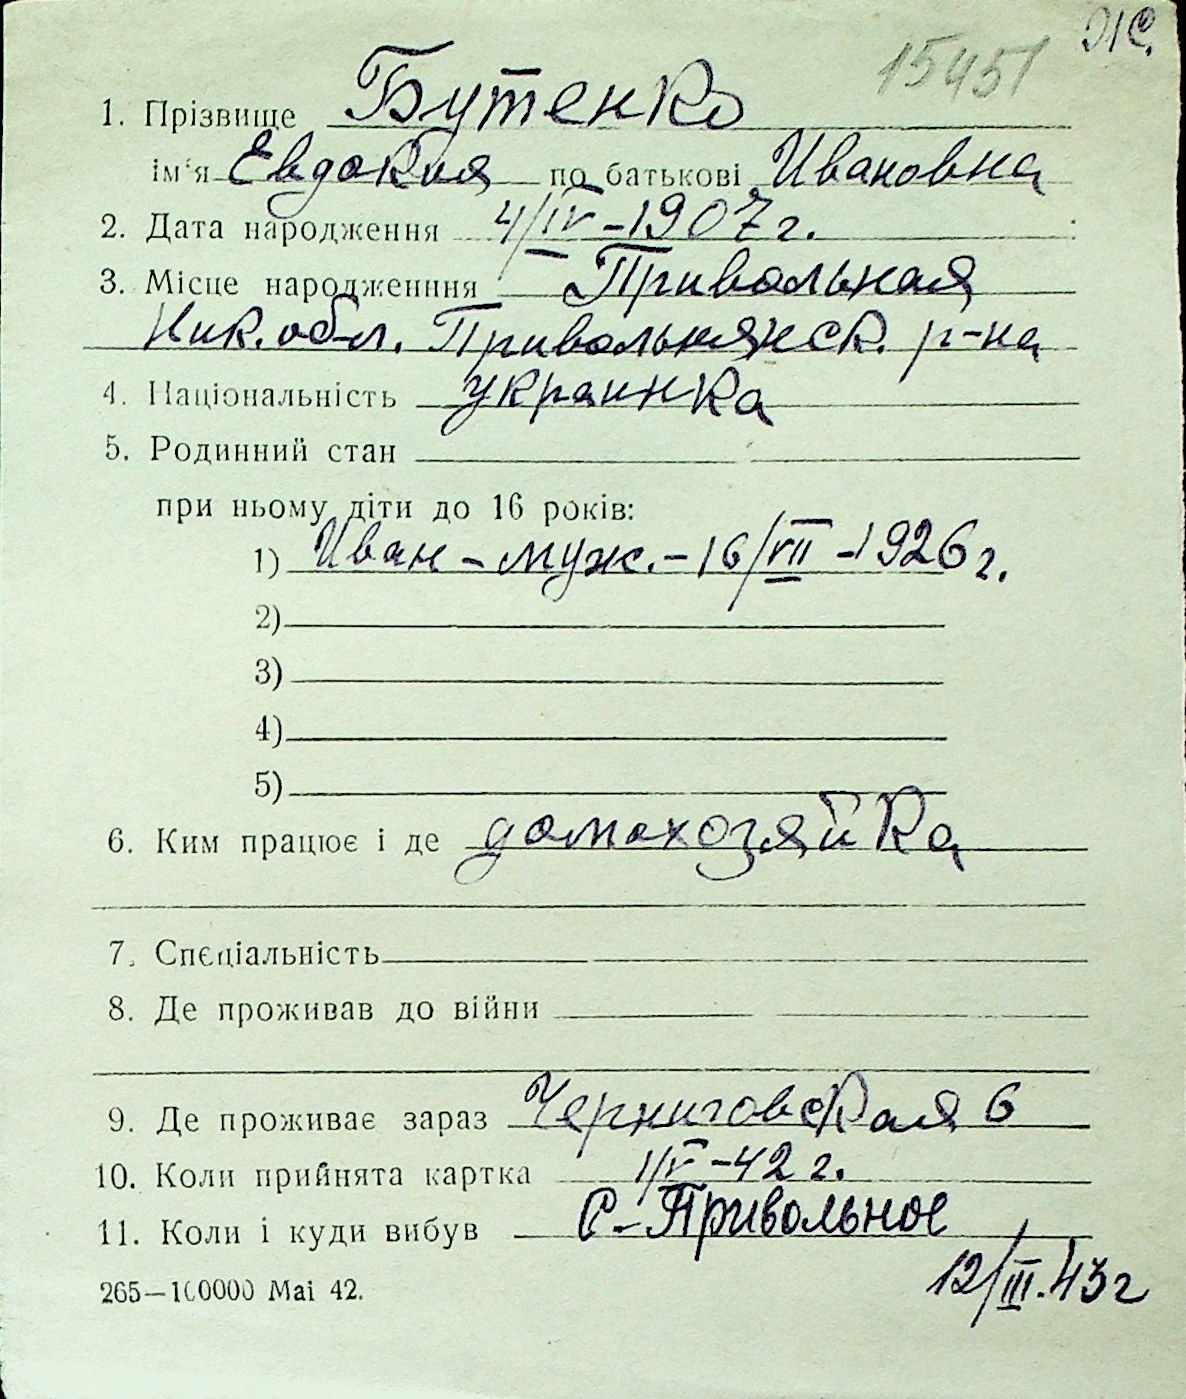 Ж.
15451
1. Прізвище Бутенко
ім'я Евдокия по батькові Ивановна
2. Дата народження 4/IV-1907г.
3. Місце народженння Привольная
Ник. обл. Привольнянск. р-на
4. Національність украинка
5. Родинний стан
при ньому діти до 16 років:
1) Иван - муж. - 16/VII - 1926 г.
2)
3)
4)
5)
6. Ким працює і де домохозяйка
7. Спєціальність
8. Де проживав до війни
9. Де проживає зараз Черниговская 6
10. Коли прийнята картка 1/V-42 г.
11. Коли і куди вибув С-Привольное
12/III.43г
265—100000 Mai 42.